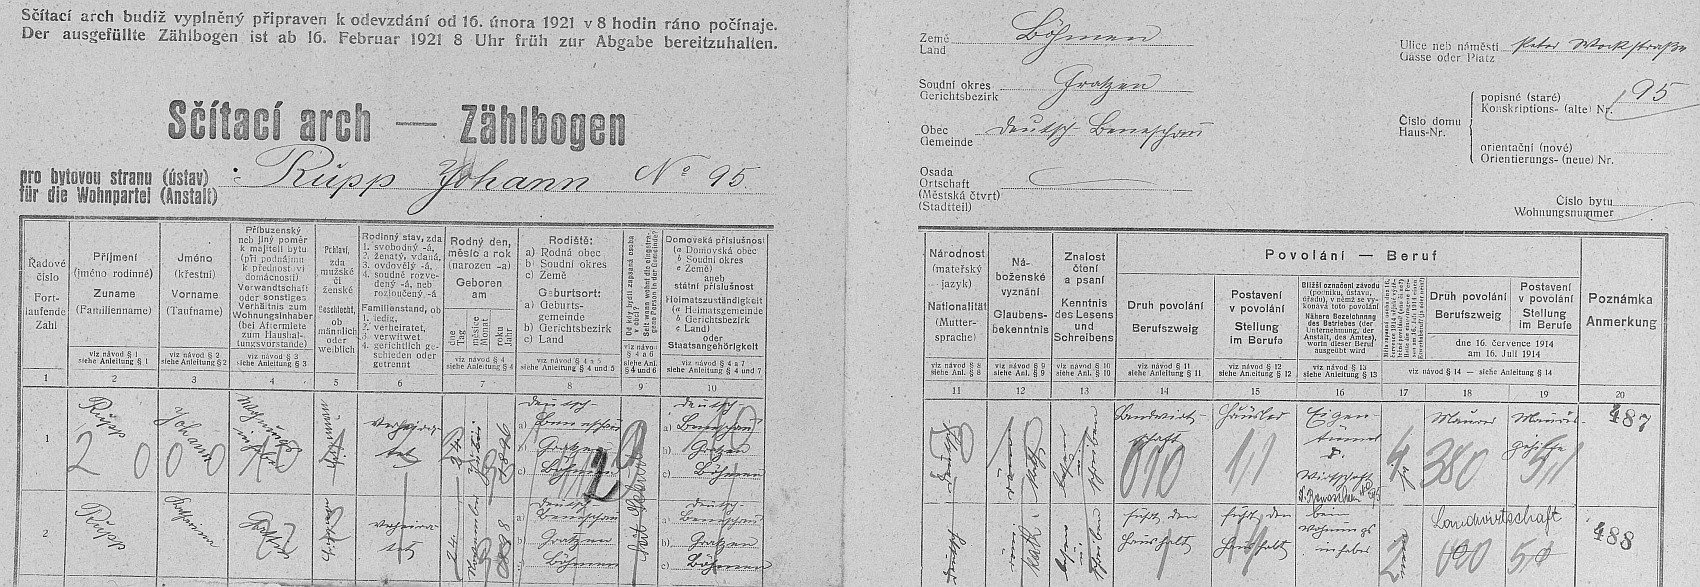 Sčítací arch budiž vyplněný připraven k odevzdání od 16. února 1921 v 8 hodin ráno počínaje.
Der ausgefüllte Zählbogen ist ab 16. Februar 1921 8 Uhr früh zur Abgabe bereitzuhalten.
Sčítací arch — Zählbogen
pro bytovou stranu (ústav)
für die Wohnpartei (Anstalt)
: Rupp Johann No 95.
Země
Land
Böhmen
Soudní okres
Gerichtsbezirk
Gratzen
Obec
Gemeinde
Deutsch-Beneschau
Osada
Ortschaft
(Městská čtvrť)
(Stadtteil)
Ulice neb náměstí
Gasse oder Platz
Peter Wockstraße
Číslo domu
Haus-Nr.
popisné (staré)
Konskriptions- (alte) Nr.
95
orientační (nové)
Orientierungs- (neue) Nr.
Číslo bytu
Wohnungsnummer
Řadové
číslo
Fort-
laufende
Zahl
1
Příjmení
(jméno rodinné)
Zuname
(Familienname)
viz návod § 1
siehe Anleitung § 1
2
Jméno
(křestní)
Vorname
(Taufname)
viz návod § 2
siehe Anleitung § 2
3
Příbuzenský
neb jiný poměr
k majiteli bytu
(při podnájmu
k přednostovi
domácnosti)
Verwandtschaft
oder sonstiges
Verhältnis zum
Wohnungsinhaber
(bei Aftermiete
zum Haushal-
tungsvorstande)
viz návod § 3
siehe Anleitung § 3
4
Pohlaví,
zda
mužské
či
ženské
Geschlecht,
ob
männlich
oder
weiblich
5
Rodinný stav, zda
1. svobodný -á,
2. ženatý, vdaná,
3. ovdovělý -á,
4. soudně rozve-
dený -á neb
rozloučený -á
Familienstand, ob
1. ledig,
2. verheiratet,
3. verwitwet
4. gerichtlich ge-
schieden oder
getrennt
6
Rodný den,
měsíc a rok
(narozen -a)
Geboren
am
dne
Tag
měsíce
Monat
roku
Jahr
viz návod § 4
siehe Anleitung § 4
7
Rodiště:
a) Rodná obec
b) Soudní okres
c) Země
Geburtsort:
a) Geburts-
gemeinde
b) Gerichtsbezirk
c) Land
viz návod § 4 a 5
siehe Anleitung § 4 und 5
8
9
Domovská příslušnost
(a Domovská obec
b Soudní okres
c Země)
aneb
státní příslušnost
Heimatszuständigkeit
(a Heimatsgemeinde
b Gerichtsbezirk
c Land)
oder
Staatsangehörigkeit
viz návod § 4 a 7
siehe Anleitung § 4 und 7
10
Národnost
(mateřský
jazyk)
Nationalität
(Mutter-
sprache)
viz návod § 8
siehe Anl. § 8
11
Ná-
boženské
vyznání
Glaubens-
bekenntnis
viz návod § 9
siehe Anl. § 9
12
Znalost
čtení
a psaní
Kenntnis
des Lesens
und
Schreibens
viz návod § 10
siehe Anl. § 10
13
Povolání — Beruf
Druh povolání
Berufszweig
viz návod § 11
siehe Anleitung § 11
14
Postavení
v povolání
Stellung
im Berufe
viz návod § 12
siehe Anleitung § 12
15
Bližší označení závodu
(podniku, ústavu,
úřadu), v němž se vy-
konává toto povolání
Nähere Bezeichnung
des Betriebes (der
Unternehmung, der
Anstalt, des Amtes),
worin dieser Beruf
ausgeübt wird
viz návod § 13
siehe Anleitung § 13
16
17
Druh povolání
Berufszweig
18
Postavení
v povolání
Stellung
im Berufe
19
dne 16. července 1914
am 16. Juli 1914
viz návod § 14 — siehe Anleitung § 14
Poznámka
Anmerkung
20
1
Rupp
Johann
verheira-
tet
a) Deutsch-
Beneschau
b) Gratzen
c) Böhmen
a) Deutsch-
Beneschau
b) Gratzen
c) Böhmen
Landwirt-
schaft
Häusler
Eigen-
tümer
d.
Wirtschaft
Maurer
Maurer-
gehilfe
487
2 000
29
070
11
380
51
2
Rupp
Katharina
Gattin
verheira-
tet
24
November
a) Deutsch-
Beneschau
b) Gratzen
c) Böhmen
a) Deutsch-
Beneschau
b) Gratzen
c) Böhmen
führt den
Haushalt
führt den
Haushalt
beim
Wohnungs-
inhaber
Landwirtschaft
488